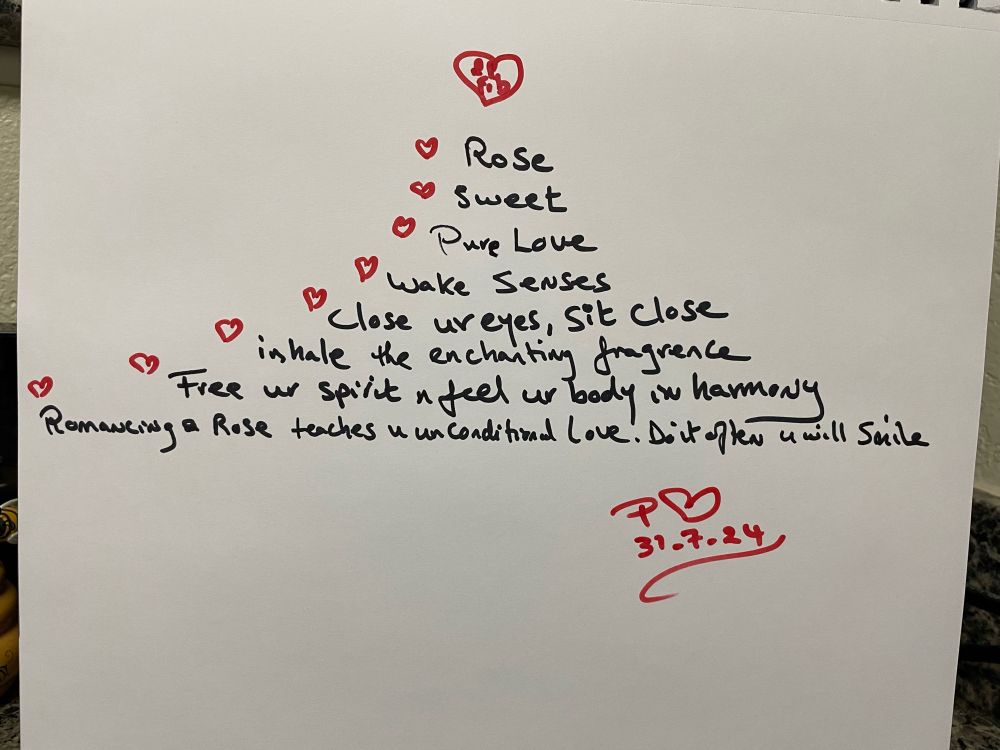 21
Fib
Rose
Sweet
Pure Love
Wake Senses
Close ur eyes, Sit Close
inhale the enchanting fragrence
Free ur spirit n feel ur body in harmony
Romancing a Rose teaches u unconditional Love. Do it often u will Smile
P
31.7.24